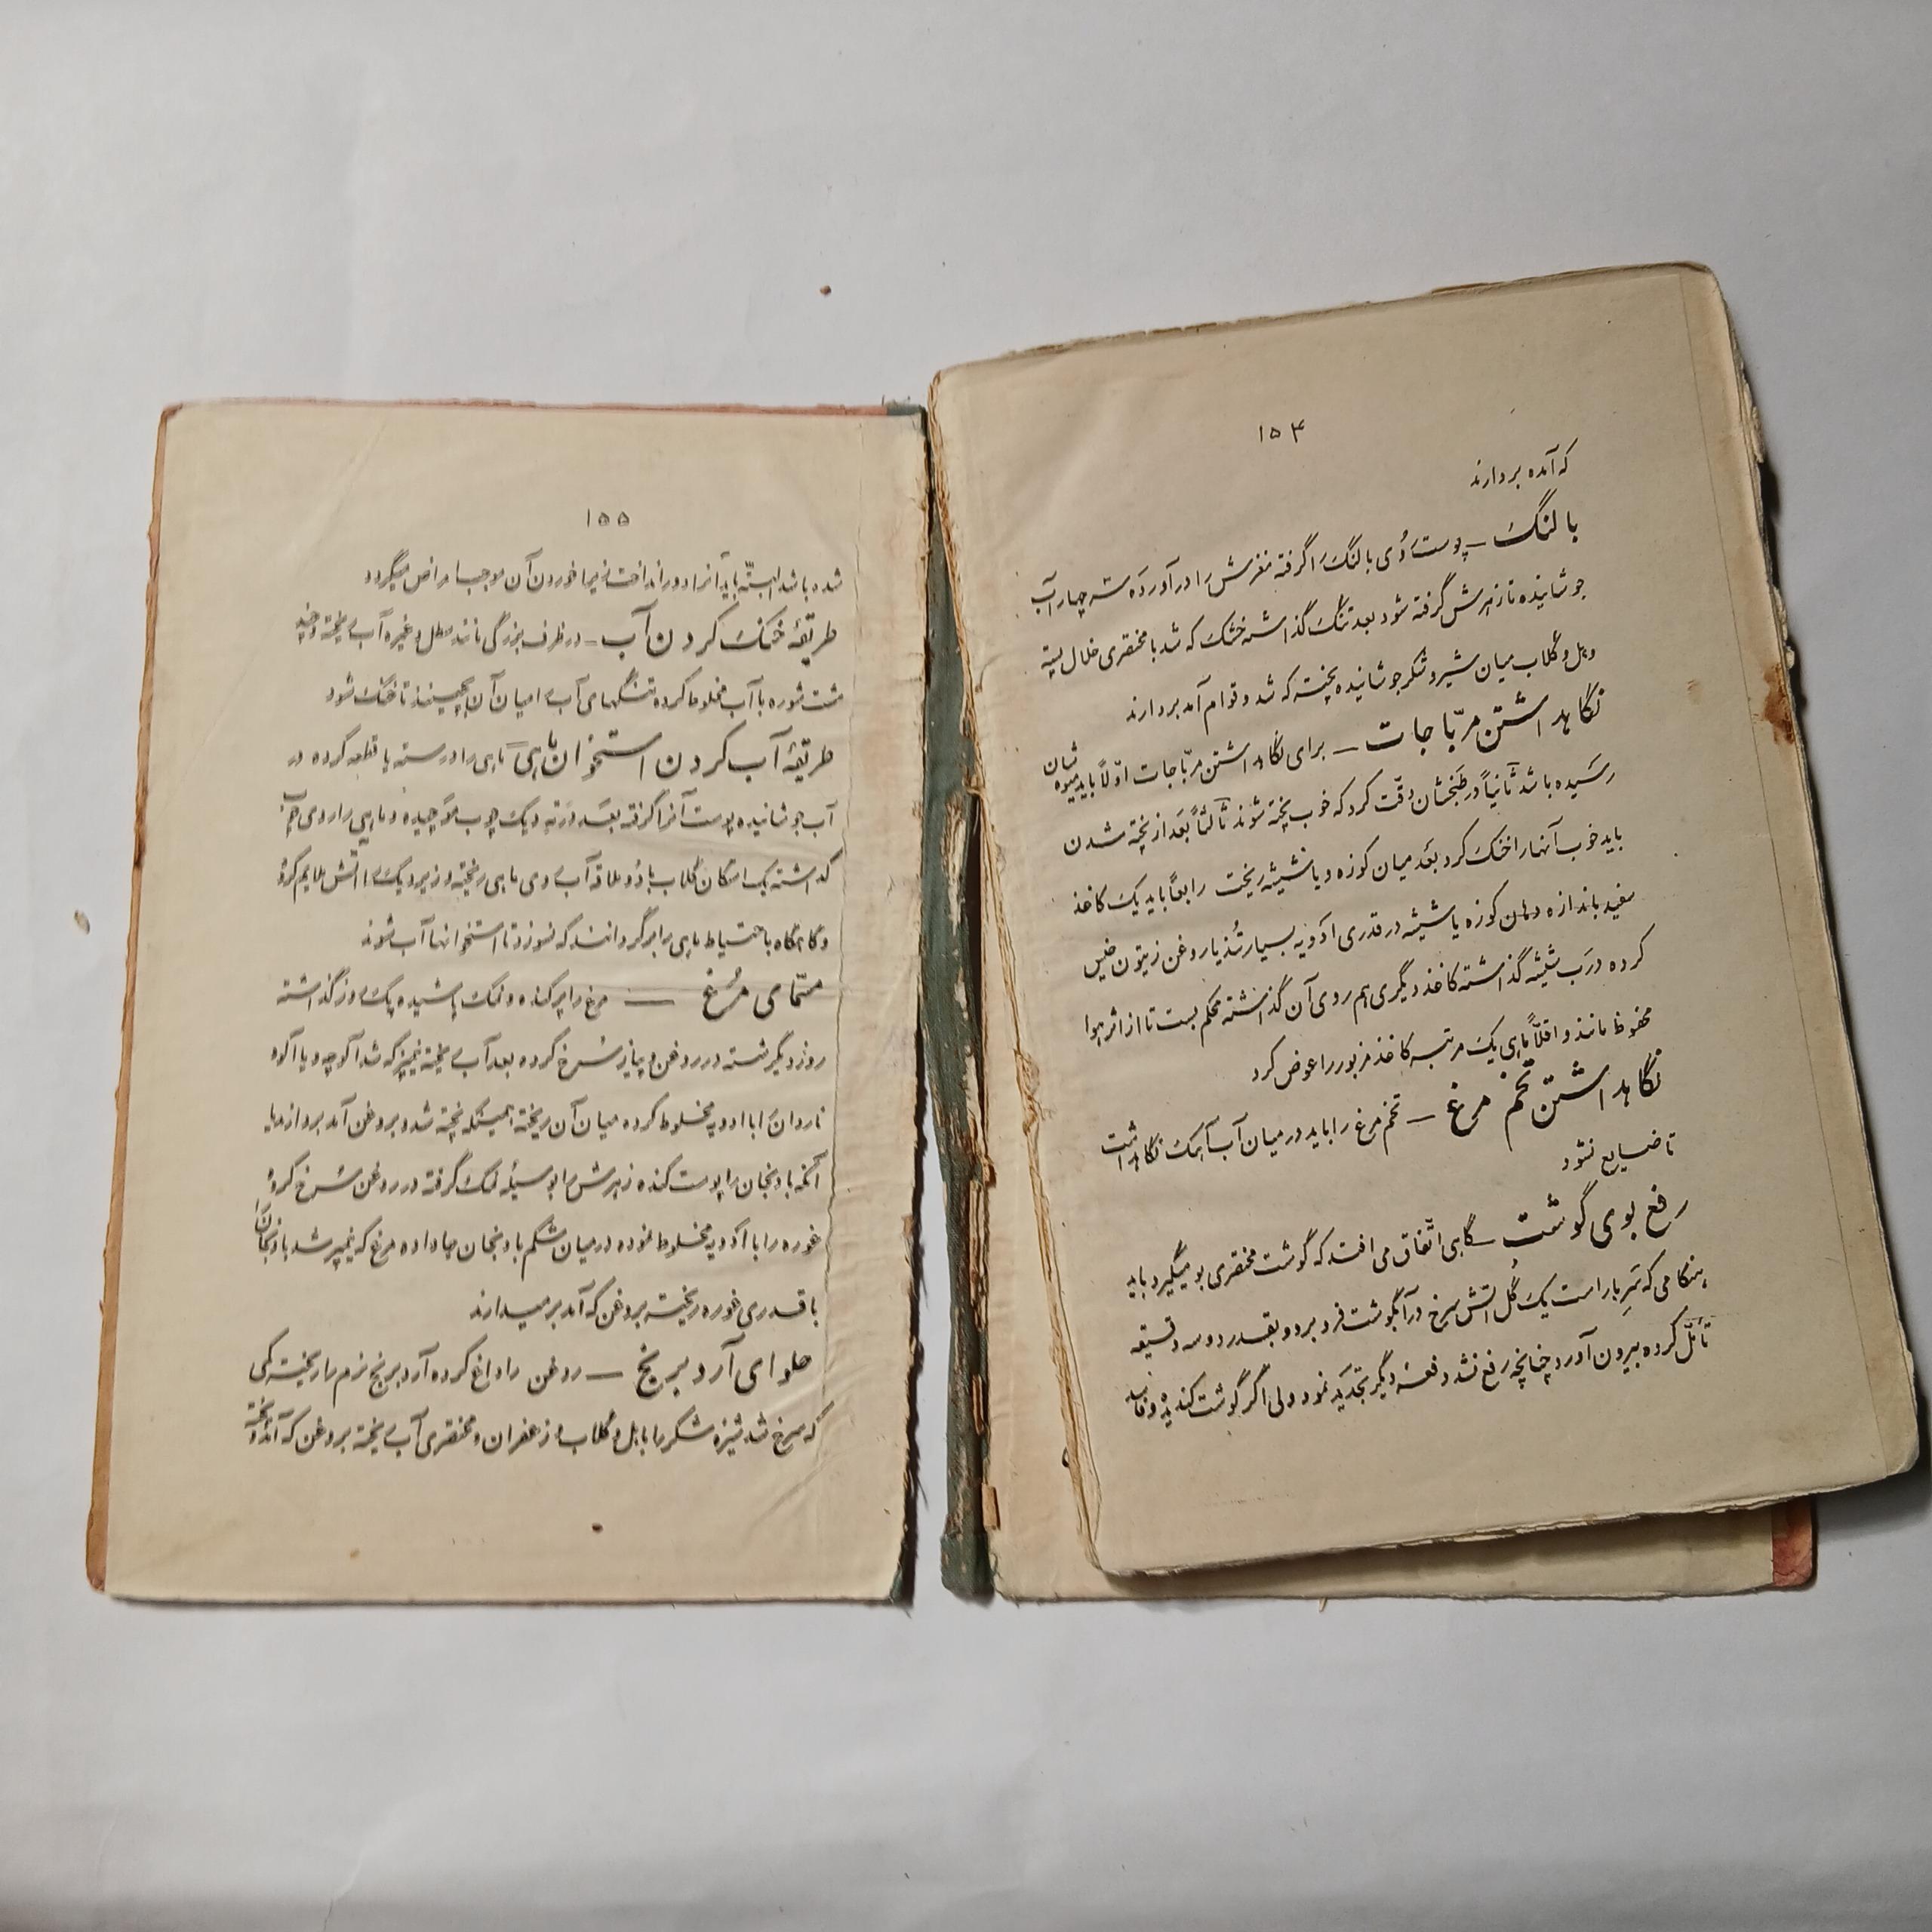 ۱۵۴
که آمده بردارند
بالنگ – پوست روی بالنگ را گرفته مغزش را درآورده سه چهار آب
جوشانیده تا زهرش گرفته شود بعد تنگ گذاشته خشک که شد با مختصری خلال پسته
و هل و گلاب میان شیر و شکر جوشانیده پخته که شد و قوام آمد بردارند
نگاهداشتن مرّباجات – برای نگاهداشتن مرّباجات اوّلاً باید میوه‌شان
رسیده باشد ثانیاً در طبخشان دقّت کرد که خوب پخته شوند ثالثاً بعد از پخته شدن
باید خوب آنها را خنک کرد بعد میان کوزه و یا شیشه ریخت رابعاً باید یک کاغذ
سفید باندازه دهان کوزه یا شیشه در قدری ادویه بسیار تُند یا روغن زیتون خیس
کرده درب شیشه گذاشته کاغذ دیگری هم روی آن گذاشته محکم بست تا از اثر هوا
محفوظ مانند و اقلّاً ماهی یک مرتبه کاغذ مزبور را عوض کرد
نگاهداشتن تخم مرغ – تخم مرغ را باید در میان آب آهک نگاهداشت
تا ضایع نشود
رفع بوی گوشت – گاهی اتّفاق می افتد که گوشت مختصری بو میگیرد باید
هنگامی که سَرِ بار است یک گُل آتش سرخ در آبگوشت فرو برد و بقدر دو سه دقیقه
تأمّل کرده بیرون آورد چنانچه رفع نشد دفعهٔ دیگر تجدید نمود ولی اگر گوشت گندیده و فاسد
۱۵۵
شده باشد البتّه باید آنرا دور انداخت زیرا خوردن آن موجب امراض میگردد
طریقهٔ خنک کردن آب – در ظرف بزرگی مانند سطل و غیره آب ریخته و چند
مشت شوره با آب مخلوط کرده تنگهای آب را میان آن بچینند تا خنک شود
طریقهٔ آب کردن استخوان ماهی – ماهی را درسته یا قطعه کرده در
آب جوشانیده پوست آنرا گرفته بعد در ته دیک چوب مَو چیده و ماهی را روی چوب
گذاشته یک استکان گلاب با دو ملاقه آب روی ماهی ریخته و زیر دیک را آتش ملایم کرده
و گاهگاه باحتیاط ماهی را برگردانند که نسوزد تا استخوانها آب شوند
متمّای مُرغ — مرغ را پر کنده و نمک پاشیده یک روز گذاشته
روز دیگر شسته در روغن و پیاز سُرخ کرده بعد آب ریخته نیمپز که شد آلوچه و یا آلوه
ناردان را با ادویه مخلوط کرده میان آن ریخته همینکه پخته شد و بروغن آمد بردارند یا
آنکه بادنجان را پوست کنده زهرش را بوسیلهٔ نمک گرفته در روغن سُرخ کرده
غوره را با ادویه مخلوط نموده در میان شکم بادنجان جا داده مرغ که نیمپز شد بادنجان را
با قدری غوره ریخته بروغن که آمد برمیدارند
حلوای آرد برنج — روغن را داغ کرده آرد برنج نرم را ریخته کمی
که سرخ شد شیره شکر را با هل و گلاب و زعفران و مختصری آب ریخته بروغن که آمد و پخته